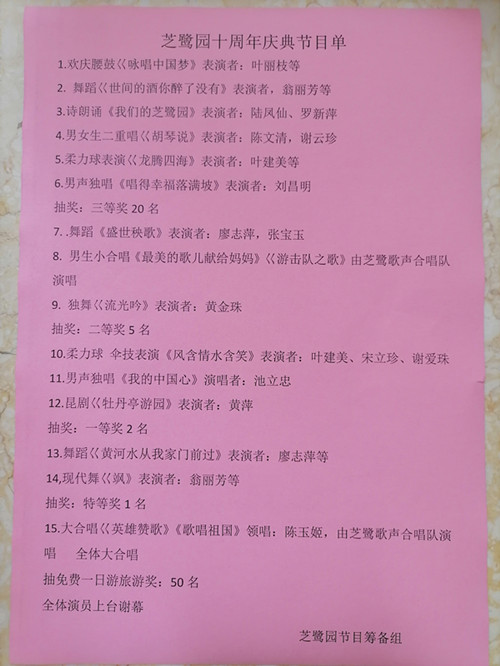 芝鹭园十周年庆典节目单
1.欢庆腰鼓巜咏唱中国梦》表演者：叶丽枝等
2. 舞蹈巜世间的酒你醉了没有》表演者，翁丽芳等
3.诗朗诵《我们的芝鹭园》表演者：陆凤仙、罗新萍
4.男女生二重唱巜胡琴说》表演者：陈文清，谢云珍
5.柔力球表演巜龙腾四海》表演者：叶建美等
6.男声独唱《唱得幸福落满坡》表演者：刘昌明
抽奖：三等奖 20 名
7. .舞蹈《盛世秧歌》表演者：廖志萍，张宝玉
8. 男生小合唱《最美的歌儿献给妈妈》巜游击队之歌》由芝鹭歌声合唱队
演唱
9. 独舞巜流光吟》表演者：黄金珠
抽奖：二等奖 5 名
10.柔力球 伞技表演《风含情水含笑》表演者：叶建美、宋立珍、谢爱珠
11.男声独唱《我的中国心》演唱者：池立忠
12.昆剧巜牡丹亭游园》表演者：黄萍
抽奖：一等奖 2 名
13.舞蹈巜黄河水从我家门前过》表演者：廖志萍等
14,现代舞巜飒》表演者：翁丽芳等
抽奖：特等奖 1 名
15.大合唱巜英雄赞歌》《歌唱祖国》领唱：陈玉姬，由芝鹭歌声合唱队演
唱 全体大合唱
抽免费一日游旅游奖：50 名
全体演员上台谢幕
芝鹭园节目筹备组